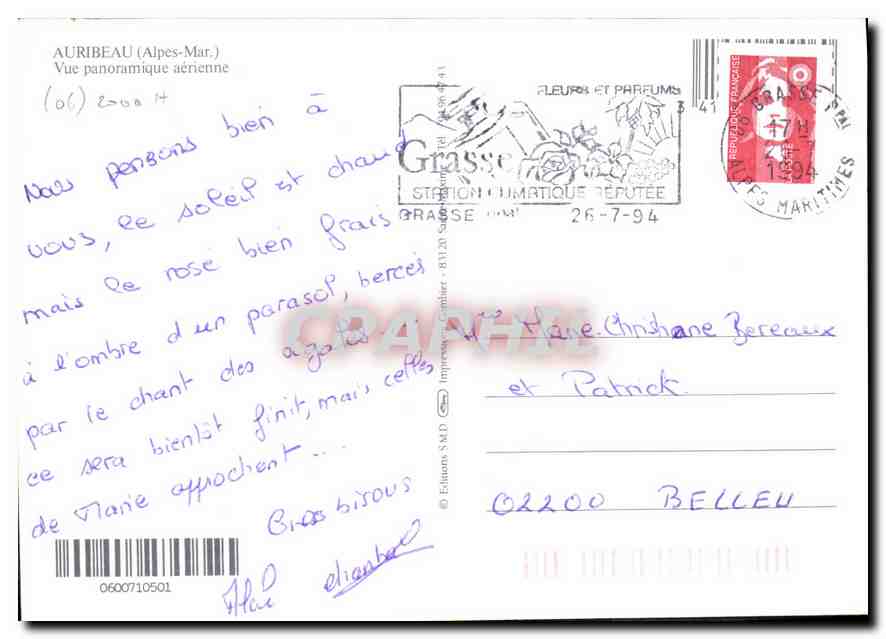 AURIBEAU (Alpes-Mar.)
Vue panoramique aérienne
(06) 2000 H
Nous pensons bien à
vous, le soleil est chaud
mais le rosé bien frais
à l'ombre d'un parasol, bercés
par le chant des
ce sera bientôt finit, mais celles
de Marie approchent ....
Gros bisous
0600710501
© Editions S M D Impression Combier - 83120 Tél.
FLEURS ET PARFUMS
Grasse
STATION CLIMATIQUE RÉPUTÉE
GRASSE 26-7-94
3 41
RÉPUBLIQUE FRANÇAISE
06 GRASSE
17 H
1994
ALPES MARITIMES
CPAPHIL
Marie-Christiane Bereaux
et Patrick
02200 BELLEU